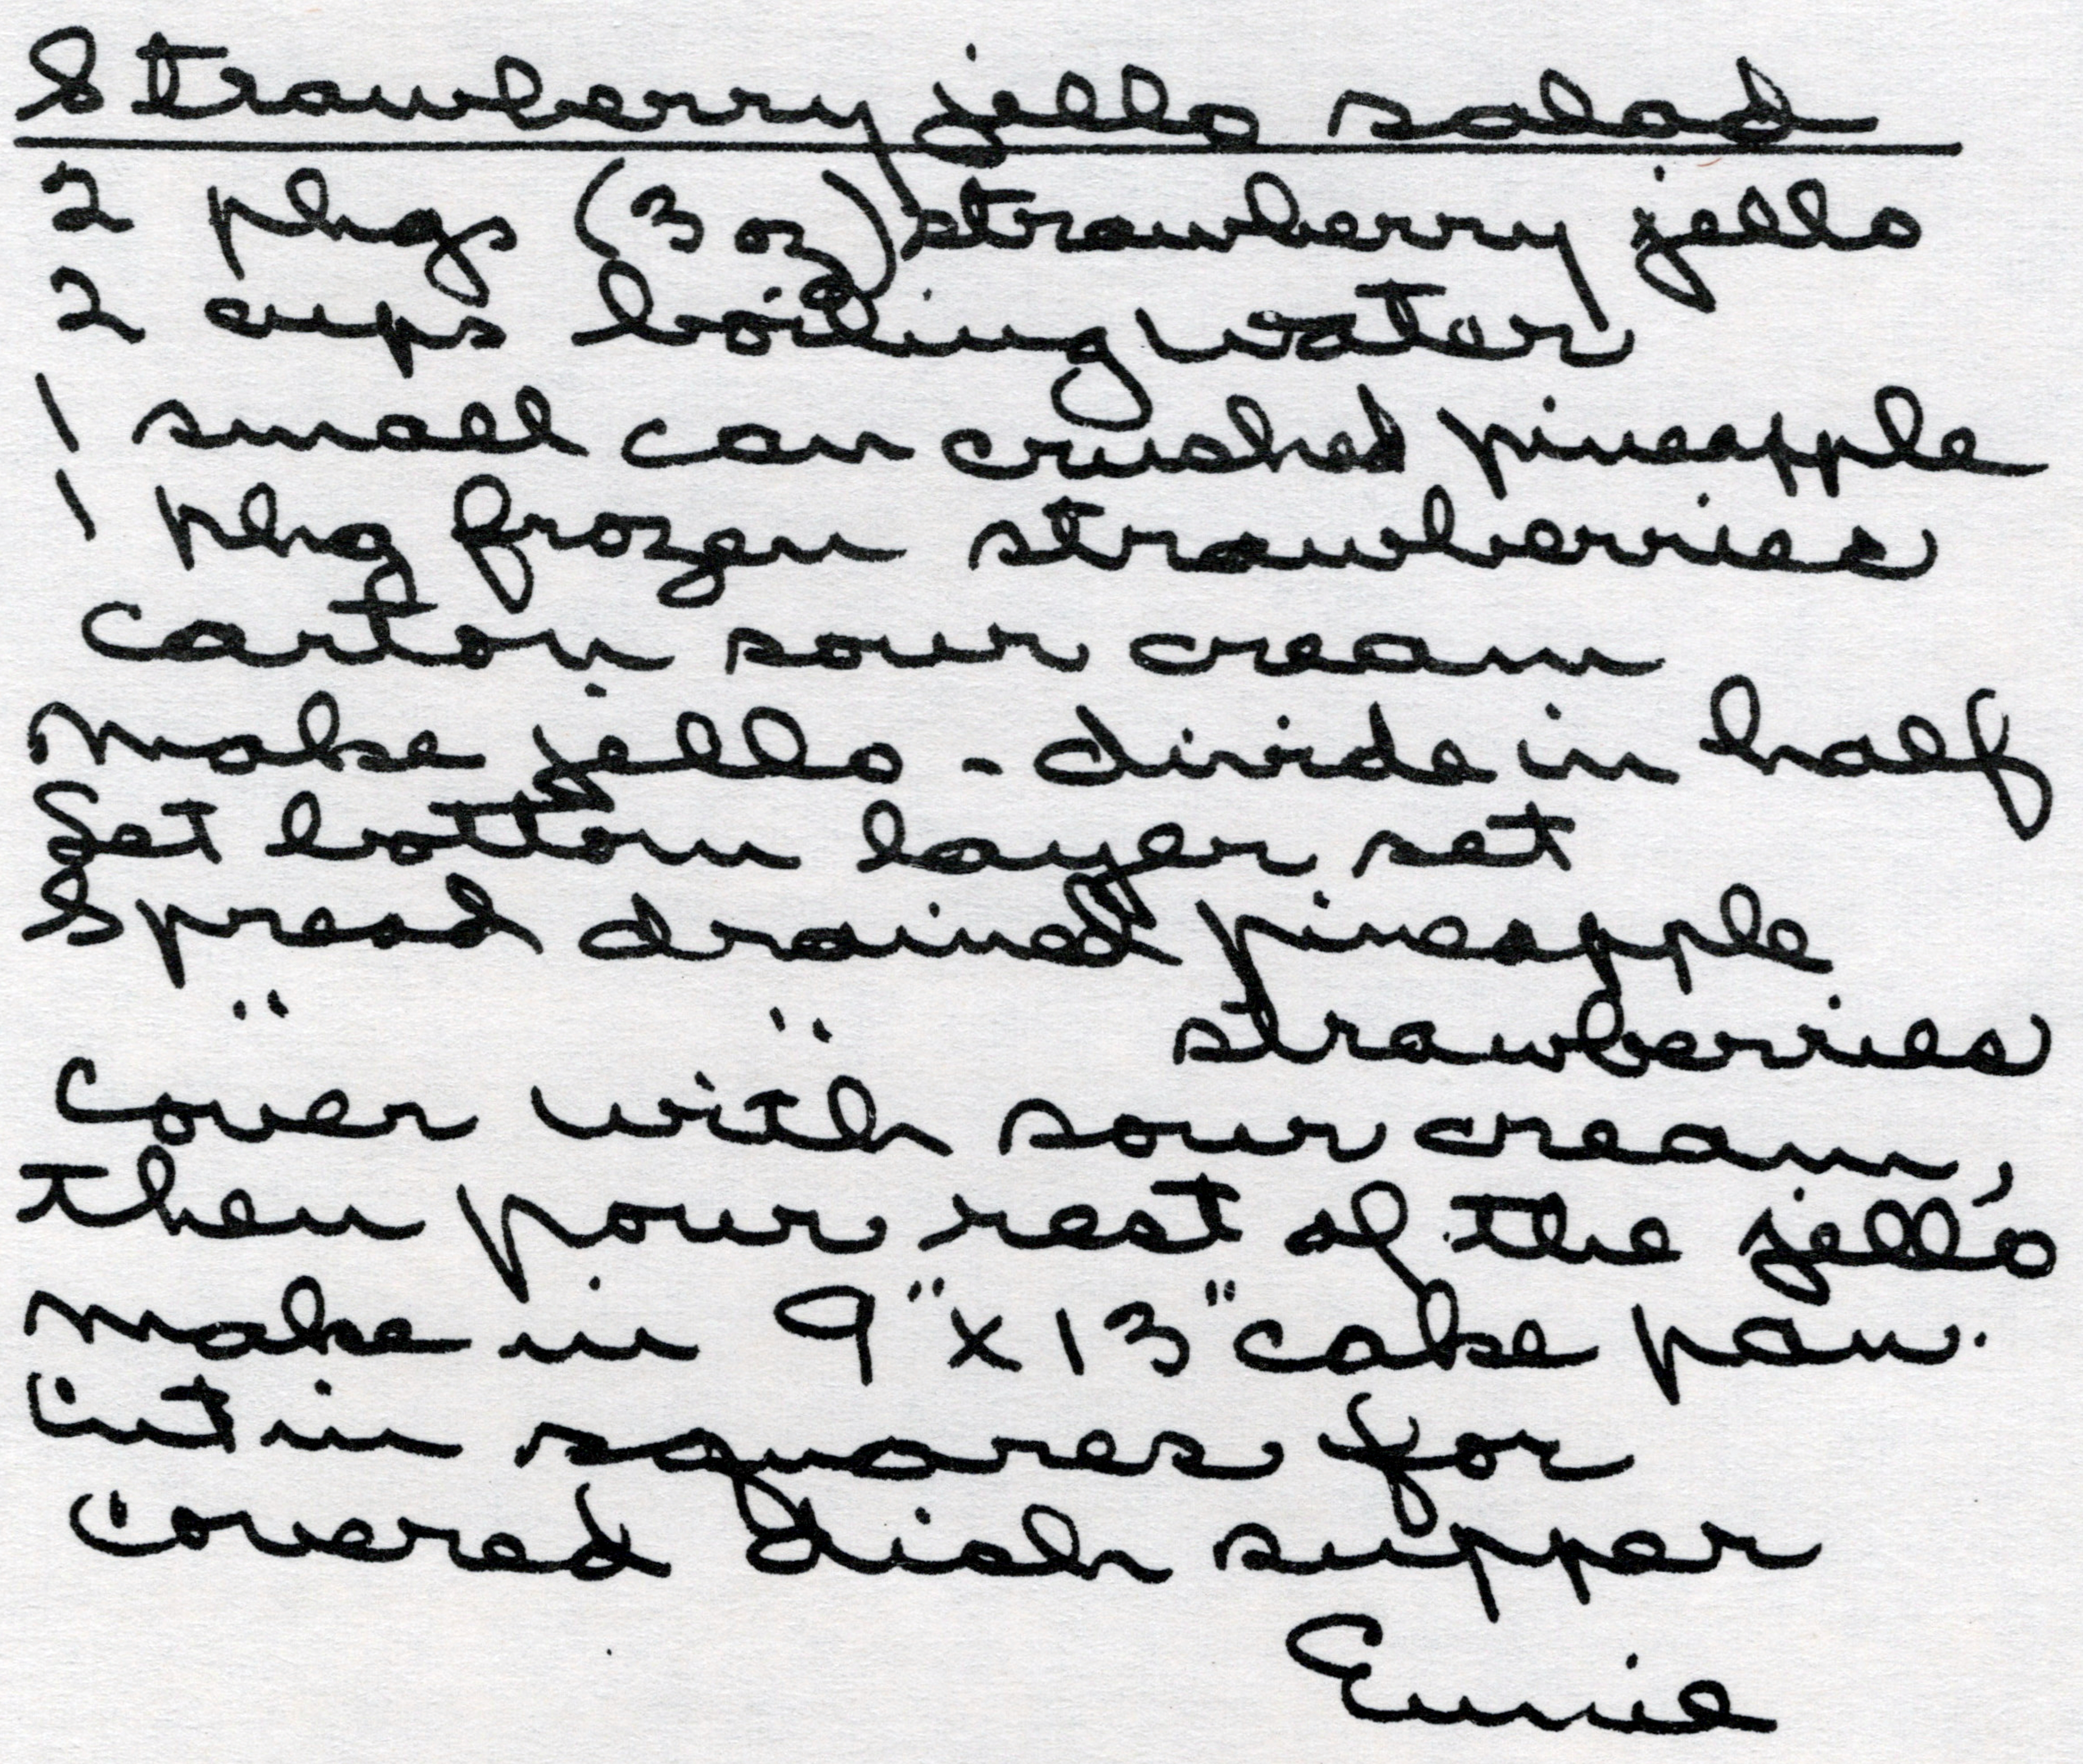 Strawberry jello salad
2 pkgs (3 oz) strawberry jello
2 cups boiling water
1 small can crushed pineapple
1 pkg frozen strawberries
carton sour cream
Make jello - divide in half
Set bottom layer set
Spread drained pineapple
" " strawberries
Cover with sour cream,
then pour rest of the jello
Make in 9" x 13" cake pan.
Cut in squares for
covered dish supper
Eunie